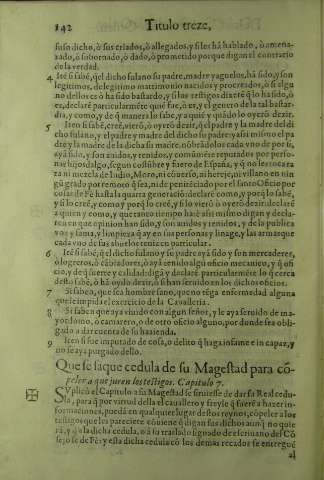 142 Titulo treze,
suso dicho, ò sus criados, ò allegados, y si les hà hablado, ò amena-
zado, ò sobornado, ò dado, ò prometido porque digan el contrario
de la verdad.
4 Itẽ si sabẽ, q̃ el dicho fulano su padre, madre y aguelos, hà sido, y son
legitimos, de legitimo matrimonio nacidos y procreados, ò si algu
no dellos es ò ha sido bastardo, y si los testigos dixerẽ q̃ lo hà sido, ò
es, declarẽ particularmẽte que fue, ò es, y el genero de la tal bastar-
dia, y como, y de q̃ manera lo sabe, y a quiẽ y quãdo lo oyerõ dezir.
5 Iten si sabẽ, creẽ, vierõ, ò oyerõ dezir, q̃ el padre y la madre del di
cho fulano, y el padre y madre del dicho su padre y assi mismo el pa
dre y la madre de la dicha su madre, nõbrãdolos cada vno de por si,
ayã sido, y son auidos, y tenidos, y comũmẽte reputados por perso-
nas hijosdalgo, segun costũbre y fuero de España, y q̃ no les toca ra
za ni mezcla de Iudio, Moro, ni cõuerso, ni hereje, ni villano en nin
gũ grado por remoto q̃ sea, ni de penitẽciado por el santo Oficio por
cosas de Fè hasta la quarta generaciõ declarẽ como, y porq̃ lo sabẽ,
y si lo creẽ, y como y porq̃ lo creẽ, y si lo vierõ ò oyerõ dezir: declarẽ
a quien y como, y que tanto tiempo ha: è assi mismo digan y decla-
ren en que opinion han sido, y son auidos y tenidos, y de la publica
voz y fama, y limpieza q̃ ay en sus personas y linage, y las armas que
cada vno de sus abuelos tenia en particular.
6 Itẽ si sabẽ, q̃ el dicho fulano y su padre ayã sido y son mercaderes,
ò logreros, ò cãbiadores, ò aya tenido algũ oficio mecanico, y q̃ ofi
cio, y de q̃ suerte y calidad: digã y declarẽ particularmẽte lo q̃ cerca
desto sabẽ, ò hà oydo dezir, ò si han seruido en los dichos oficios.
7 Si saben, que sea hombre sano, que no tẽga enfermedad alguna
que le impida el exercicio de la Caualleria.
8 Si saben que aya viuido con algun señor, y le aya seruido de ma-
yordomo, ò camarero, ò de otro oficio alguno, por donde sea obli-
gado a dar cuenta de su hazienda.
9 Iten si fue imputado de cosa, o delito q̃ haga infame en caso, y
no se aya purgado dello.
Que se saque cedula de su Magestad para cõ-
peler a que juren los testigos. Capitulo 7.
Suplicò el Capitulo a su Magestad se siruiesse de dar su Real cedu-
la, para q̃ por virtud della el cauallero y freyle q̃ fuerẽ a hazer in-
formaciones, pueda en qualquier lugar destos reynos, cõpeler a los
testigos que les pareciere cõuiene q̃ digan sus dichos aunq̃ no quie
rã, y q̃ a la dicha cedula, ò a su traslado signado de escriuano del Cõ
sejo se de Fè: y esta dicha cedula cõ los demas recados se entreguẽ
al